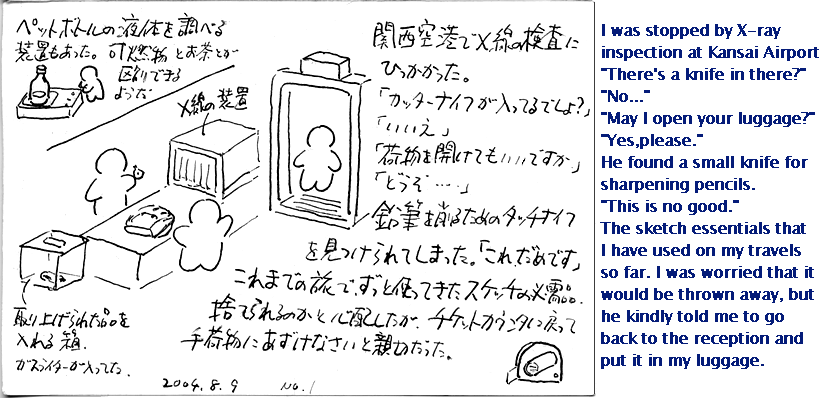 ペットボトルの液体を調べる
装置もあった。可燃物とお茶とか
区別できる
ようだ
X線の装置
関西空港でX線の検査に
ひっかかった。
「カッターナイフが入ってるでしょ?」
「いいえ」
「荷物を開けてもいいですか」
「どうぞ‥‥」
鉛筆を削るためのタッチナイフ
を見つけられてしまった。「これ、だめです」
これまでの旅でずっと使ってきたスケッチの必需品。
捨てられるのかと心配したが、チケットカウンタに戻って
手荷物にあずけなさいと親切だった。
取り上げられた品を
入れる箱。
ガスライターが入ってた。
2004.8.9 No.1
I was stopped by X-ray
inspection at Kansai Airport
"There's a knife in there?"
"No..."
"May I open your luggage?"
"Yes,please."
He found a small knife for
sharpening pencils.
"This is no good."
The sketch essentials that
I have used on my travels
so far. I was worried that it
would be thrown away, but
he kindly told me to go
back to the reception and
put it in my luggage.